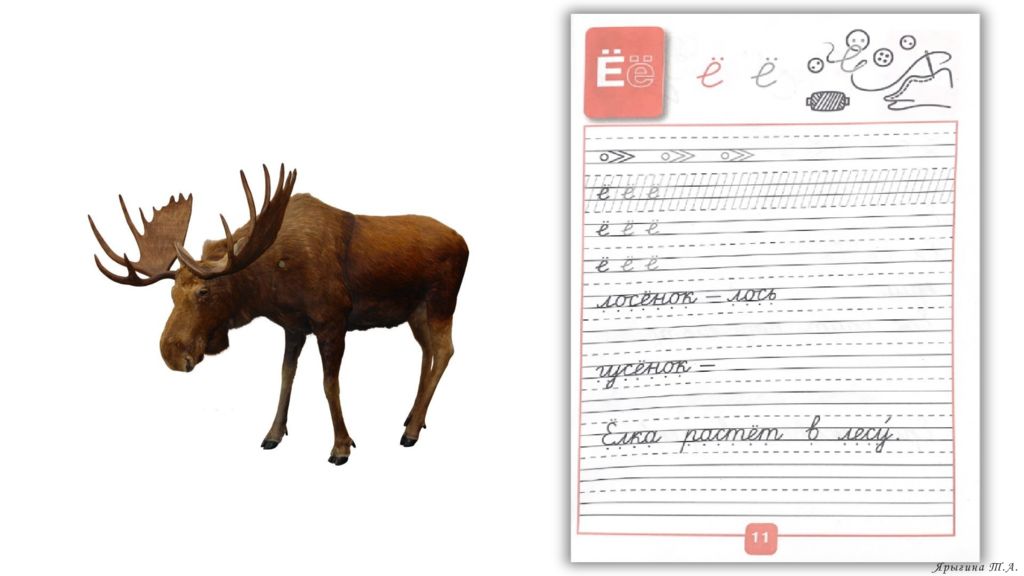 Ёё ё ё
ё ё ё
ё ё ё
ё ё ё
лосёнок – лось
гусёнок –
Ёлка растёт в лесу́.
11
Ярыгина Т.А.